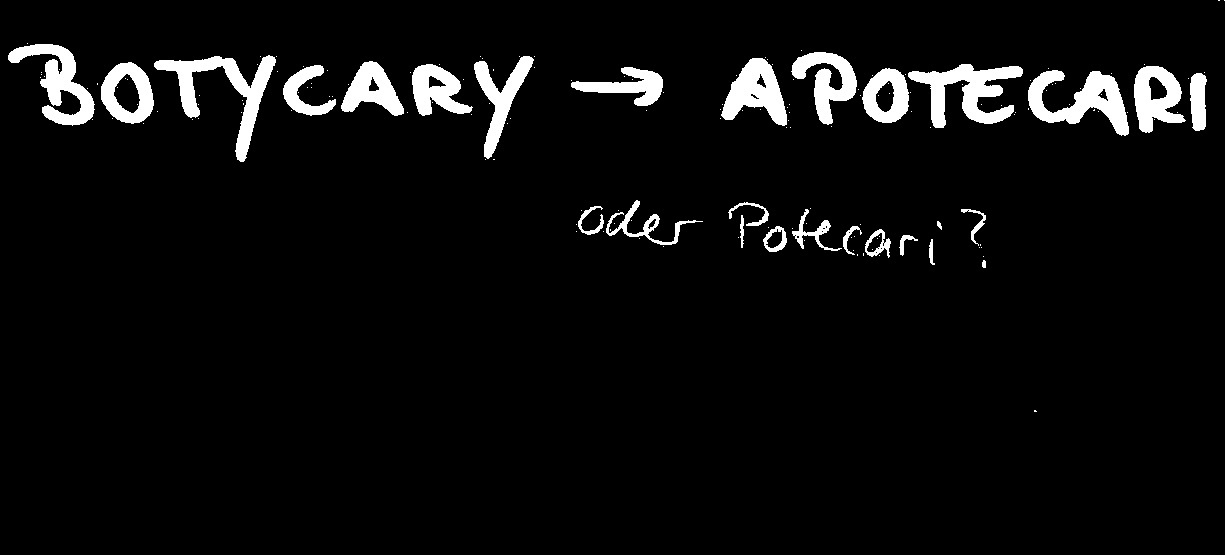 BOTYCARY → APOTECARI
oder Potecari?